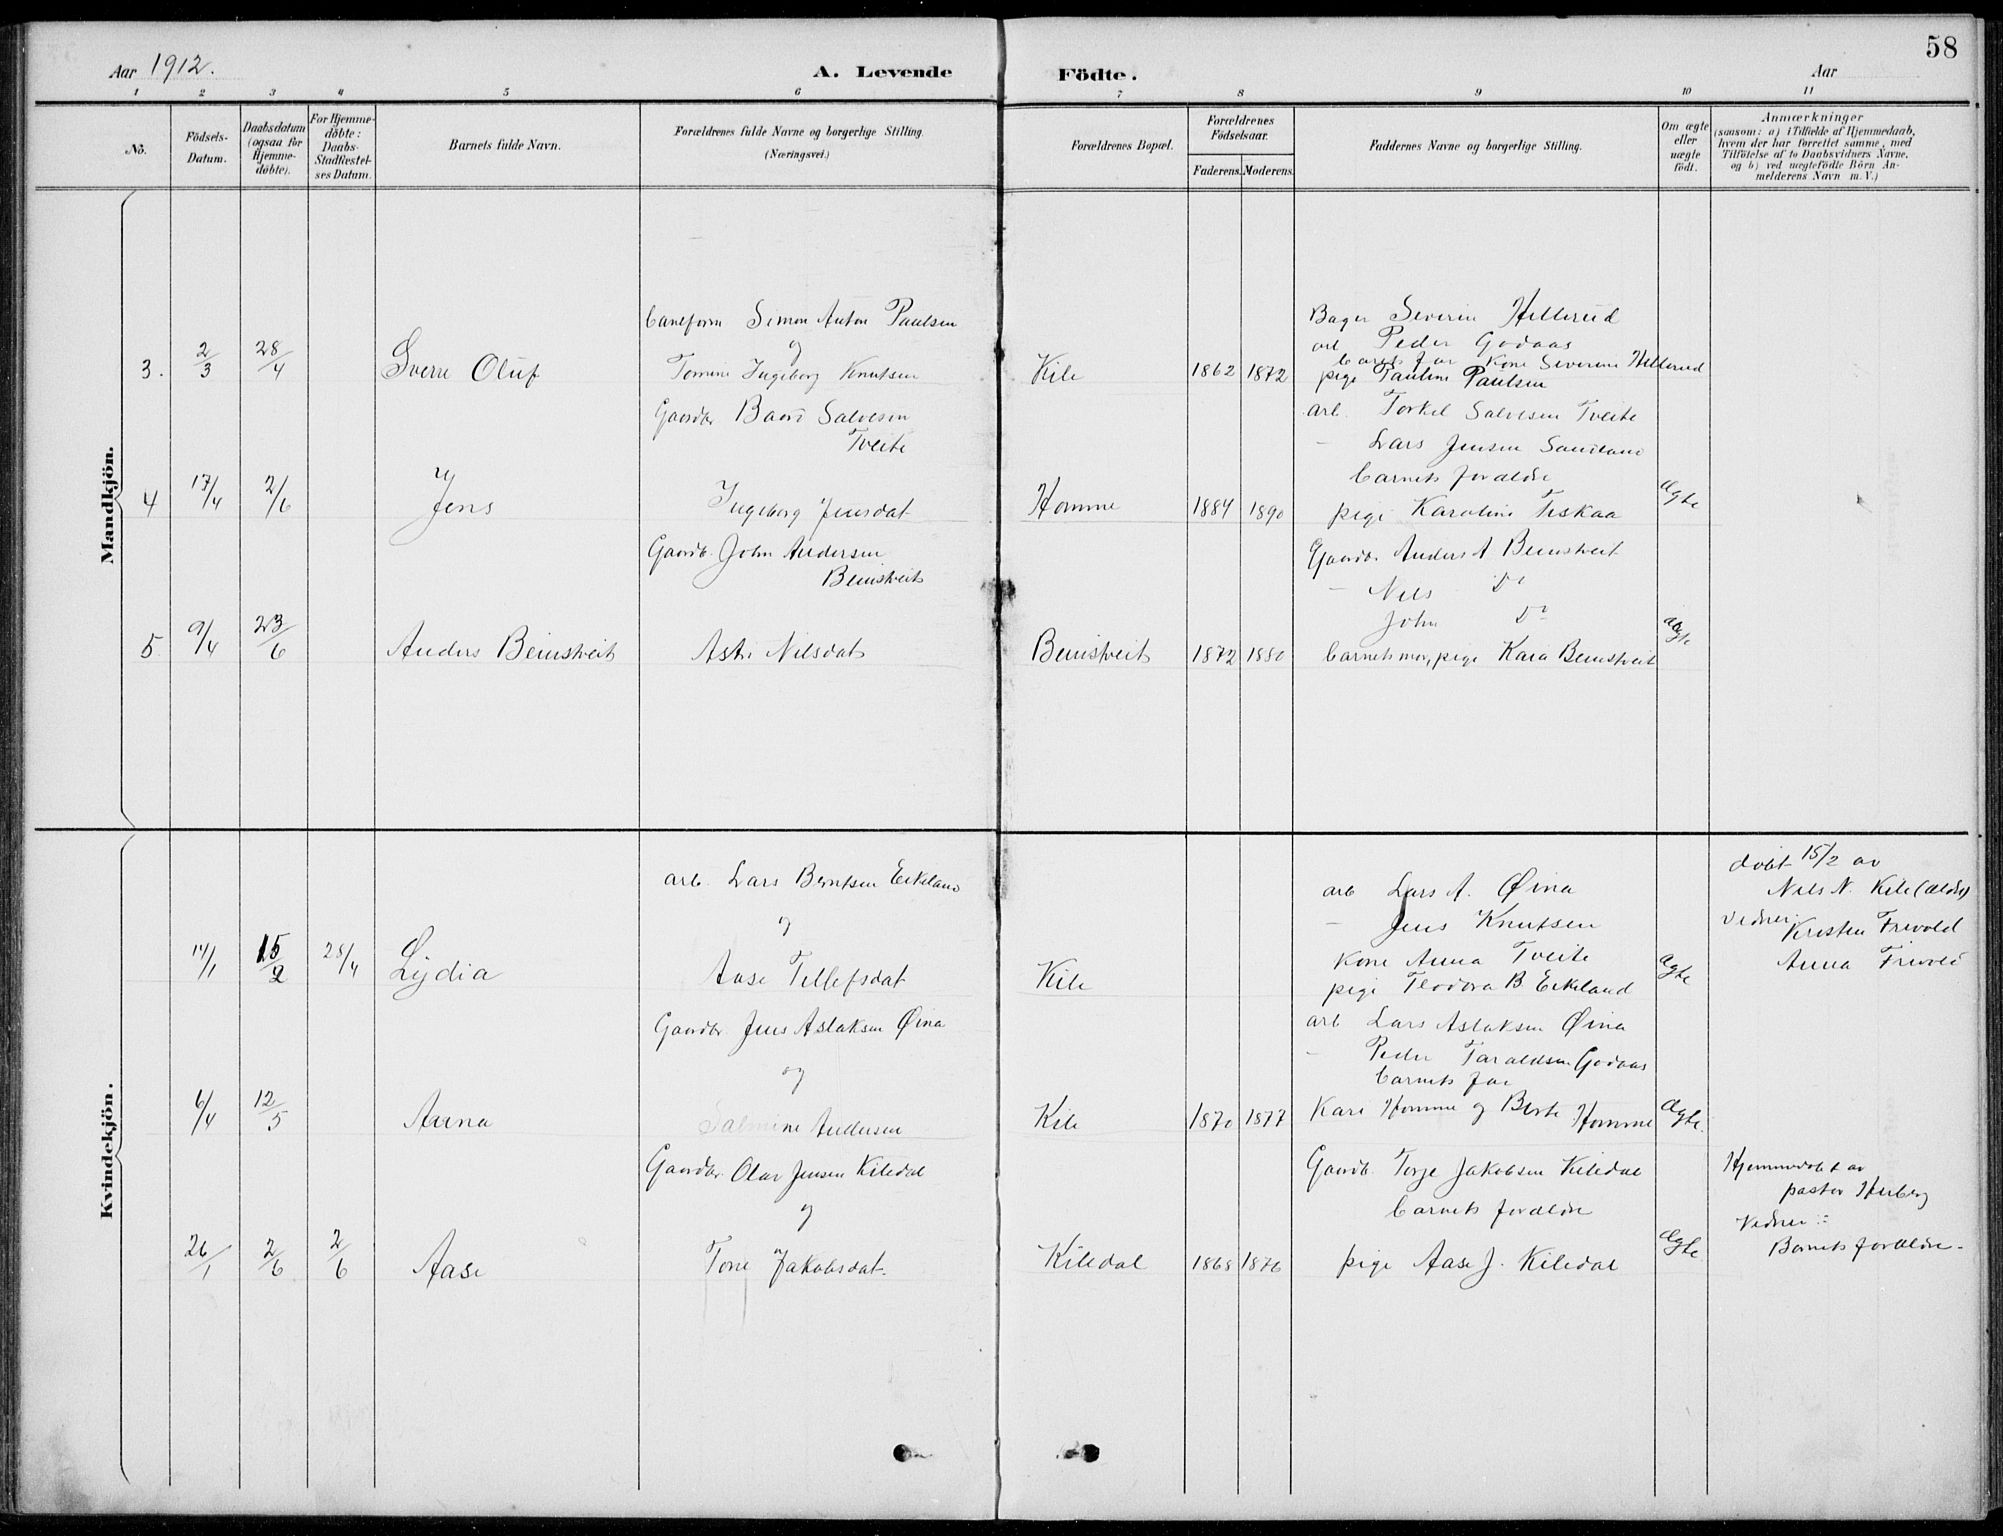 58
Aar 1912.
A. Levende Födte.
Aar
1 2 3 4 5 6 7 8 9 10 11
Nö.
Födsels-Datum.
Daabsdatum (ogsaa for Hjemme-döbte).
For Hjemme-döbte: Daabs-Stadfæstel-ses Datum.
Barnets fulde Navn.
Forældrenes fulde Navne og borgerlige Stilling. (Næringsvei.)
Forældrenes Bopæl.
Forældrenes Födselsaar.
Faderens. Moderens.
Faddernes Navne og borgerlige Stilling.
Om ægte eller uægte födt.
Anmærkninger
(saasom: a) i Tilfælde af Hjemmedaab,
hvem der har forrettet samme, med
Tilföielse af to Daabsvidners Navne,
og b) ved uægtefödte Börn An-
melderens Navn m. V.)
Mandkjön.
3. 2/3 28/4 Sverre Oluf
Simon Anton Paulsen
og
Tomine Ingeborg Knutsen
Kile 1862 1872
Bager Severin Hillerud
arb Peder Godaas
barnets far kone Severine Hillerud
pige Pauline Paulsen
4 17/4 2/6 Jens
Gaardbr Baard Salvesen
Tveite
Ingeborg Jensdat
Homme 1884 1890
arb. Torkel Salvesen Tveite
— Lars Jensen Sandland
barnets forældre
pige Karoline Fiskaa
Ægte
5 9/4 23/6 Anders Beinstveit
Gaardb. John Andersen
Beinstveit
Astri Nilsdat
Beinstveit 1872 1880
Gaardbr Anders A Beinstveit
— Nils Do
John Do
barnets mor, pige Kara Beinstveit
ægte
Kvindekjön.
14/1 15/2 28/4 Lydia
arb. Lars Berntsen Eikeland
og
Aase Tellefsdat
Kile
arb Lars A. Øina
— Jens Knutsen
kone Anna Tveite
pige Teodora B. Eikeland
Ægte
döbt 15/2 av
Nils N. Kile (ældre)
Vidner:
Kristen Frivold
Anna Frivold
6/4 12/5 Anna
Gaardbr. Jens Aslaksen Øina
og
Salmine Andersen
Kile 1870 1877
arb Lars Aslaksen Øina
— Peder Taraldsen Godaas
barnets far
Kari Homme og Berte Homme
Ægte.
26/1 2/6 2/6 Aase
Gaardbr. Olav Jensen Kiledal
og
Tone Jakobsdat.
Kiledal 1868 1876
Gaardb. Torje Jakobsen Kiledal
barnets forældre
pige Aase J. Kiledal
Ægte
Hjemmedöbt av
pastor
Vidner:
Barnets forældre.